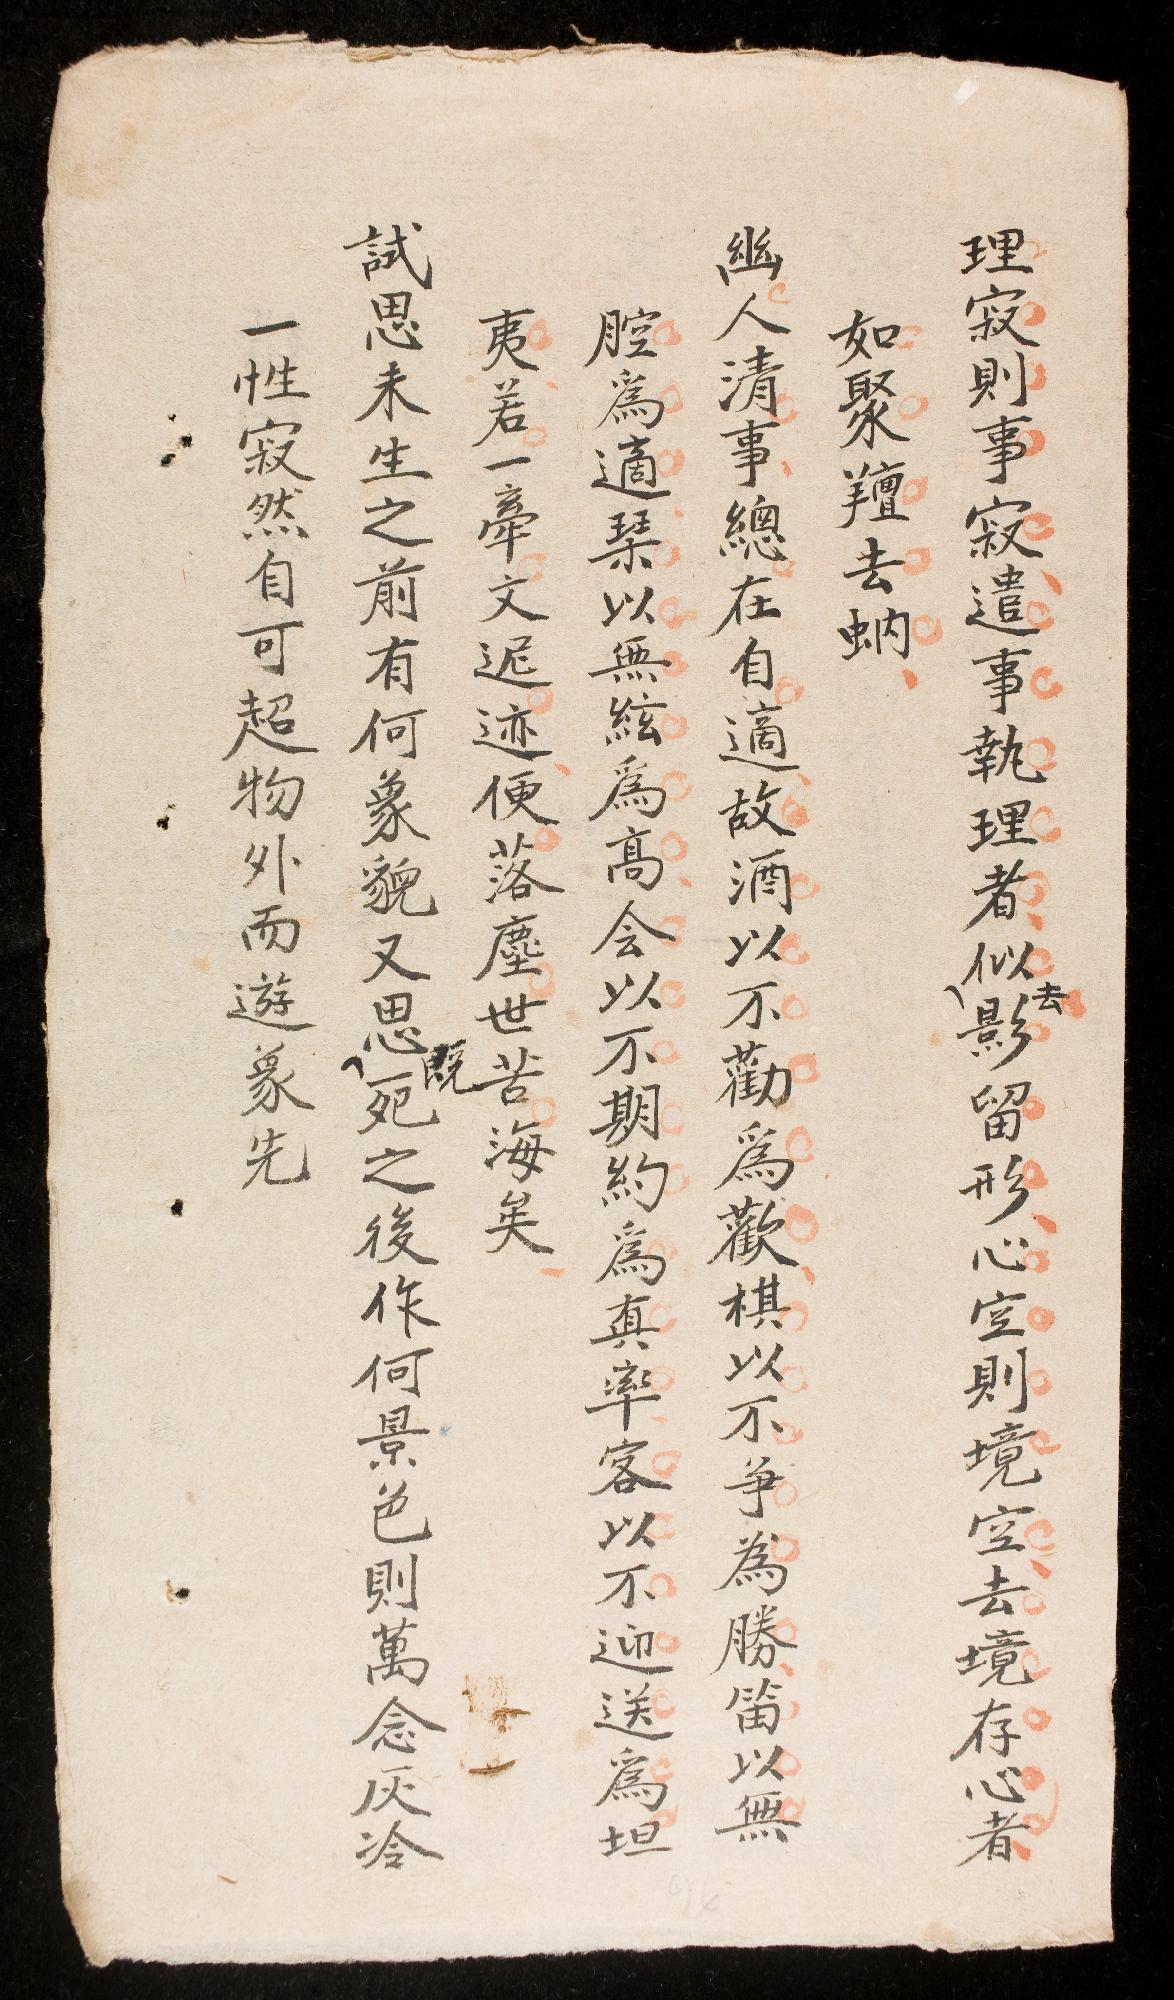 理寂則事寂遣事執理者似去影留形心空則境空去境存心者
如聚羶去蚋
幽人清事總在自適故酒以不勸爲歡棋以不爭為勝笛以無
腔爲適琹以無絃爲高会以不期約爲真率客以不迎送爲坦
夷若一牽文泥迹便落塵世苦海矣
試思未生之前有何象貌又思既死之後作何景色則萬念灰冷
一性寂然自可超物外而遊象先